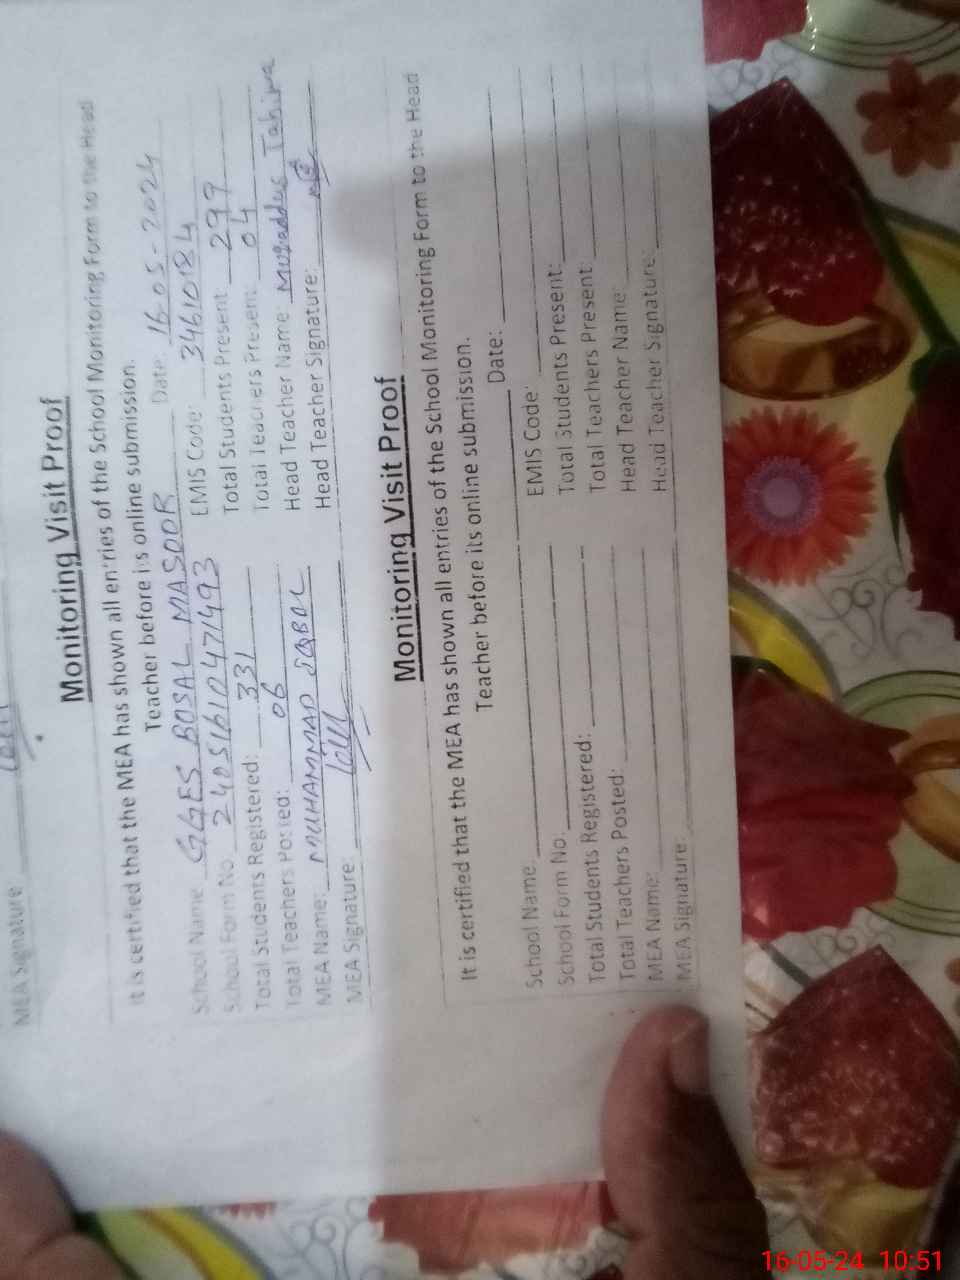 MEA Signature:
Monitoring Visit Proof
It is certified that the MEA has shown all entries of the School Monitoring Form to the Head
Teacher before its online submission.
School Name GGES BOSAL MASOOR Date: 16-05-2024
School Form No. 24051610471493 EMIS Code: 34610184
Total Students Registered: 331 Total Students Present: 299
Total Teachers Posted: 06 Total Teachers Present: 04
MEA Name: MUHAMMAD IQBAL Head Teacher Name: Muqaddus Tahira
MEA Signature: Head Teacher Signature:
Monitoring Visit Proof
It is certified that the MEA has shown all entries of the School Monitoring Form to the Head
Teacher before its online submission.
School Name Date:
School Form No. EMIS Code:
Total Students Registered: Total Students Present:
Total Teachers Posted: Total Teachers Present:
MEA Name: Head Teacher Name:
MEA Signature: Head Teacher Signature:
16-05-24 10:51